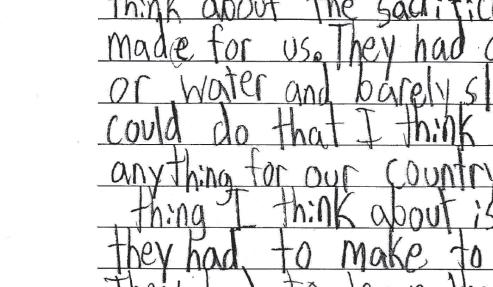 think about the
made for us. They had
or water and barely
could do that I think
anything for our
thing I think about is
they had to make to